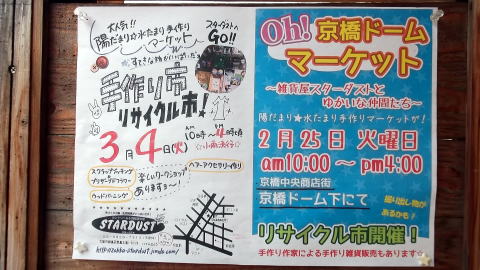 大人気!!
陽だまり☆水たまり手作り
マーケット
スターダストへ
GO!!
手作り市
リサイクル市!
3月4日(火)
AM10時〜PM4時頃
☆小雨決行☆
スクラップブッキング
プリザーブドフラワー
ウッドバーニング
楽しいワークショップ
ありますよ〜!
ヘアーアクセサリー作り
STARDUST
http://zakka-stardust.jimdo.com/
Oh! 京橋ドーム
マーケット
〜雑貨屋スターダストと
ゆかいな仲間たち〜
陽だまり★水たまり手作りマーケットが!
2月25日 火曜日
am10:00 〜 pm4:00
京橋中央商店街
京橋ドーム下にて
掘り出し物が
あるかも!
リサイクル市開催!
手作り作家による手作り雑貨販売もあります